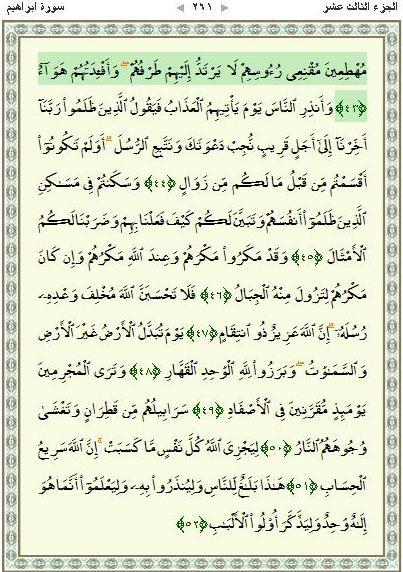 الجزء الثالث عشر ٢٦١ سورة ابراهيم
مُهْطِعِينَ مُقْنِعِى رُءُوسِهِمْ لَا يَرْتَدُّ إِلَيْهِمْ طَرْفُهُمْ ۖ وَأَفْـِٔدَتُهُمْ هَوَآءٌ
﴿٤٣﴾ وَأَنذِرِ ٱلنَّاسَ يَوْمَ يَأْتِيهِمُ ٱلْعَذَابُ فَيَقُولُ ٱلَّذِينَ ظَلَمُوا۟ رَبَّنَآ
أَخِّرْنَآ إِلَىٰٓ أَجَلٍ قَرِيبٍ نُّجِبْ دَعْوَتَكَ وَنَتَّبِعِ ٱلرُّسُلَ ۗ أَوَلَمْ تَكُونُوٓا۟
أَقْسَمْتُم مِّن قَبْلُ مَا لَكُم مِّن زَوَالٍ ﴿٤٤﴾ وَسَكَنتُمْ فِى مَسَٰكِنِ
ٱلَّذِينَ ظَلَمُوٓا۟ أَنفُسَهُمْ وَتَبَيَّنَ لَكُمْ كَيْفَ فَعَلْنَا بِهِمْ وَضَرَبْنَا لَكُمُ
ٱلْأَمْثَالَ ﴿٤٥﴾ وَقَدْ مَكَرُوا۟ مَكْرَهُمْ وَعِندَ ٱللَّهِ مَكْرُهُمْ وَإِن كَانَ
مَكْرُهُمْ لِتَزُولَ مِنْهُ ٱلْجِبَالُ ﴿٤٦﴾ فَلَا تَحْسَبَنَّ ٱللَّهَ مُخْلِفَ وَعْدِهِۦ
رُسُلَهُۥٓ ۗ إِنَّ ٱللَّهَ عَزِيزٌ ذُو ٱنتِقَامٍ ﴿٤٧﴾ يَوْمَ تُبَدَّلُ ٱلْأَرْضُ غَيْرَ ٱلْأَرْضِ
وَٱلسَّمَٰوَٰتُ ۖ وَبَرَزُوا۟ لِلَّهِ ٱلْوَٰحِدِ ٱلْقَهَّارِ ﴿٤٨﴾ وَتَرَى ٱلْمُجْرِمِينَ
يَوْمَئِذٍ مُّقَرَّنِينَ فِى ٱلْأَصْفَادِ ﴿٤٩﴾ سَرَابِيلُهُم مِّن قَطِرَانٍ وَتَغْشَىٰ
وُجُوهَهُمُ ٱلنَّارُ ﴿٥٠﴾ لِيَجْزِىَ ٱللَّهُ كُلَّ نَفْسٍ مَّا كَسَبَتْ ۚ إِنَّ ٱللَّهَ سَرِيعُ
ٱلْحِسَابِ ﴿٥١﴾ هَٰذَا بَلَٰغٌ لِّلنَّاسِ وَلِيُنذَرُوا۟ بِهِۦ وَلِيَعْلَمُوٓا۟ أَنَّمَا هُوَ
إِلَٰهٌ وَٰحِدٌ وَلِيَذَّكَّرَ أُو۟لُوا۟ ٱلْأَلْبَٰبِ ﴿٥٢﴾